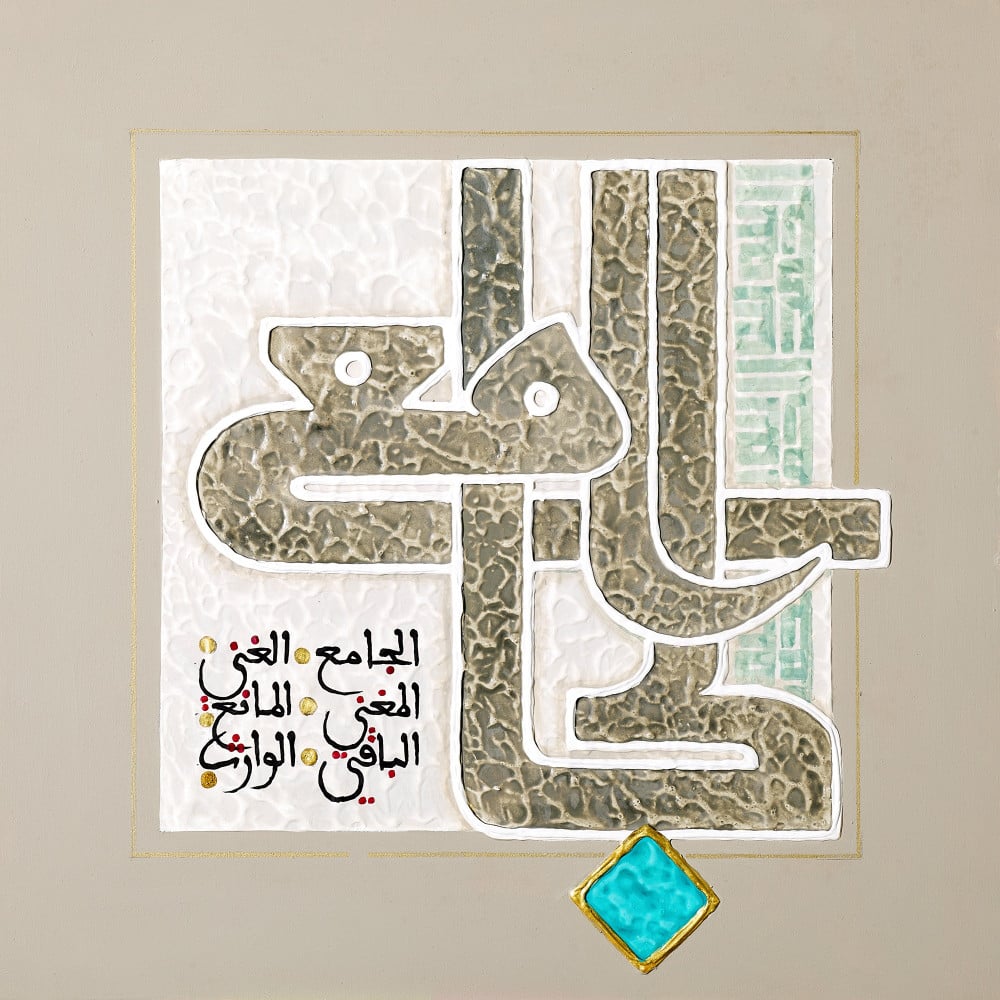 الجامع
الجامع الغني
المغني المانع
الباقي الوارث